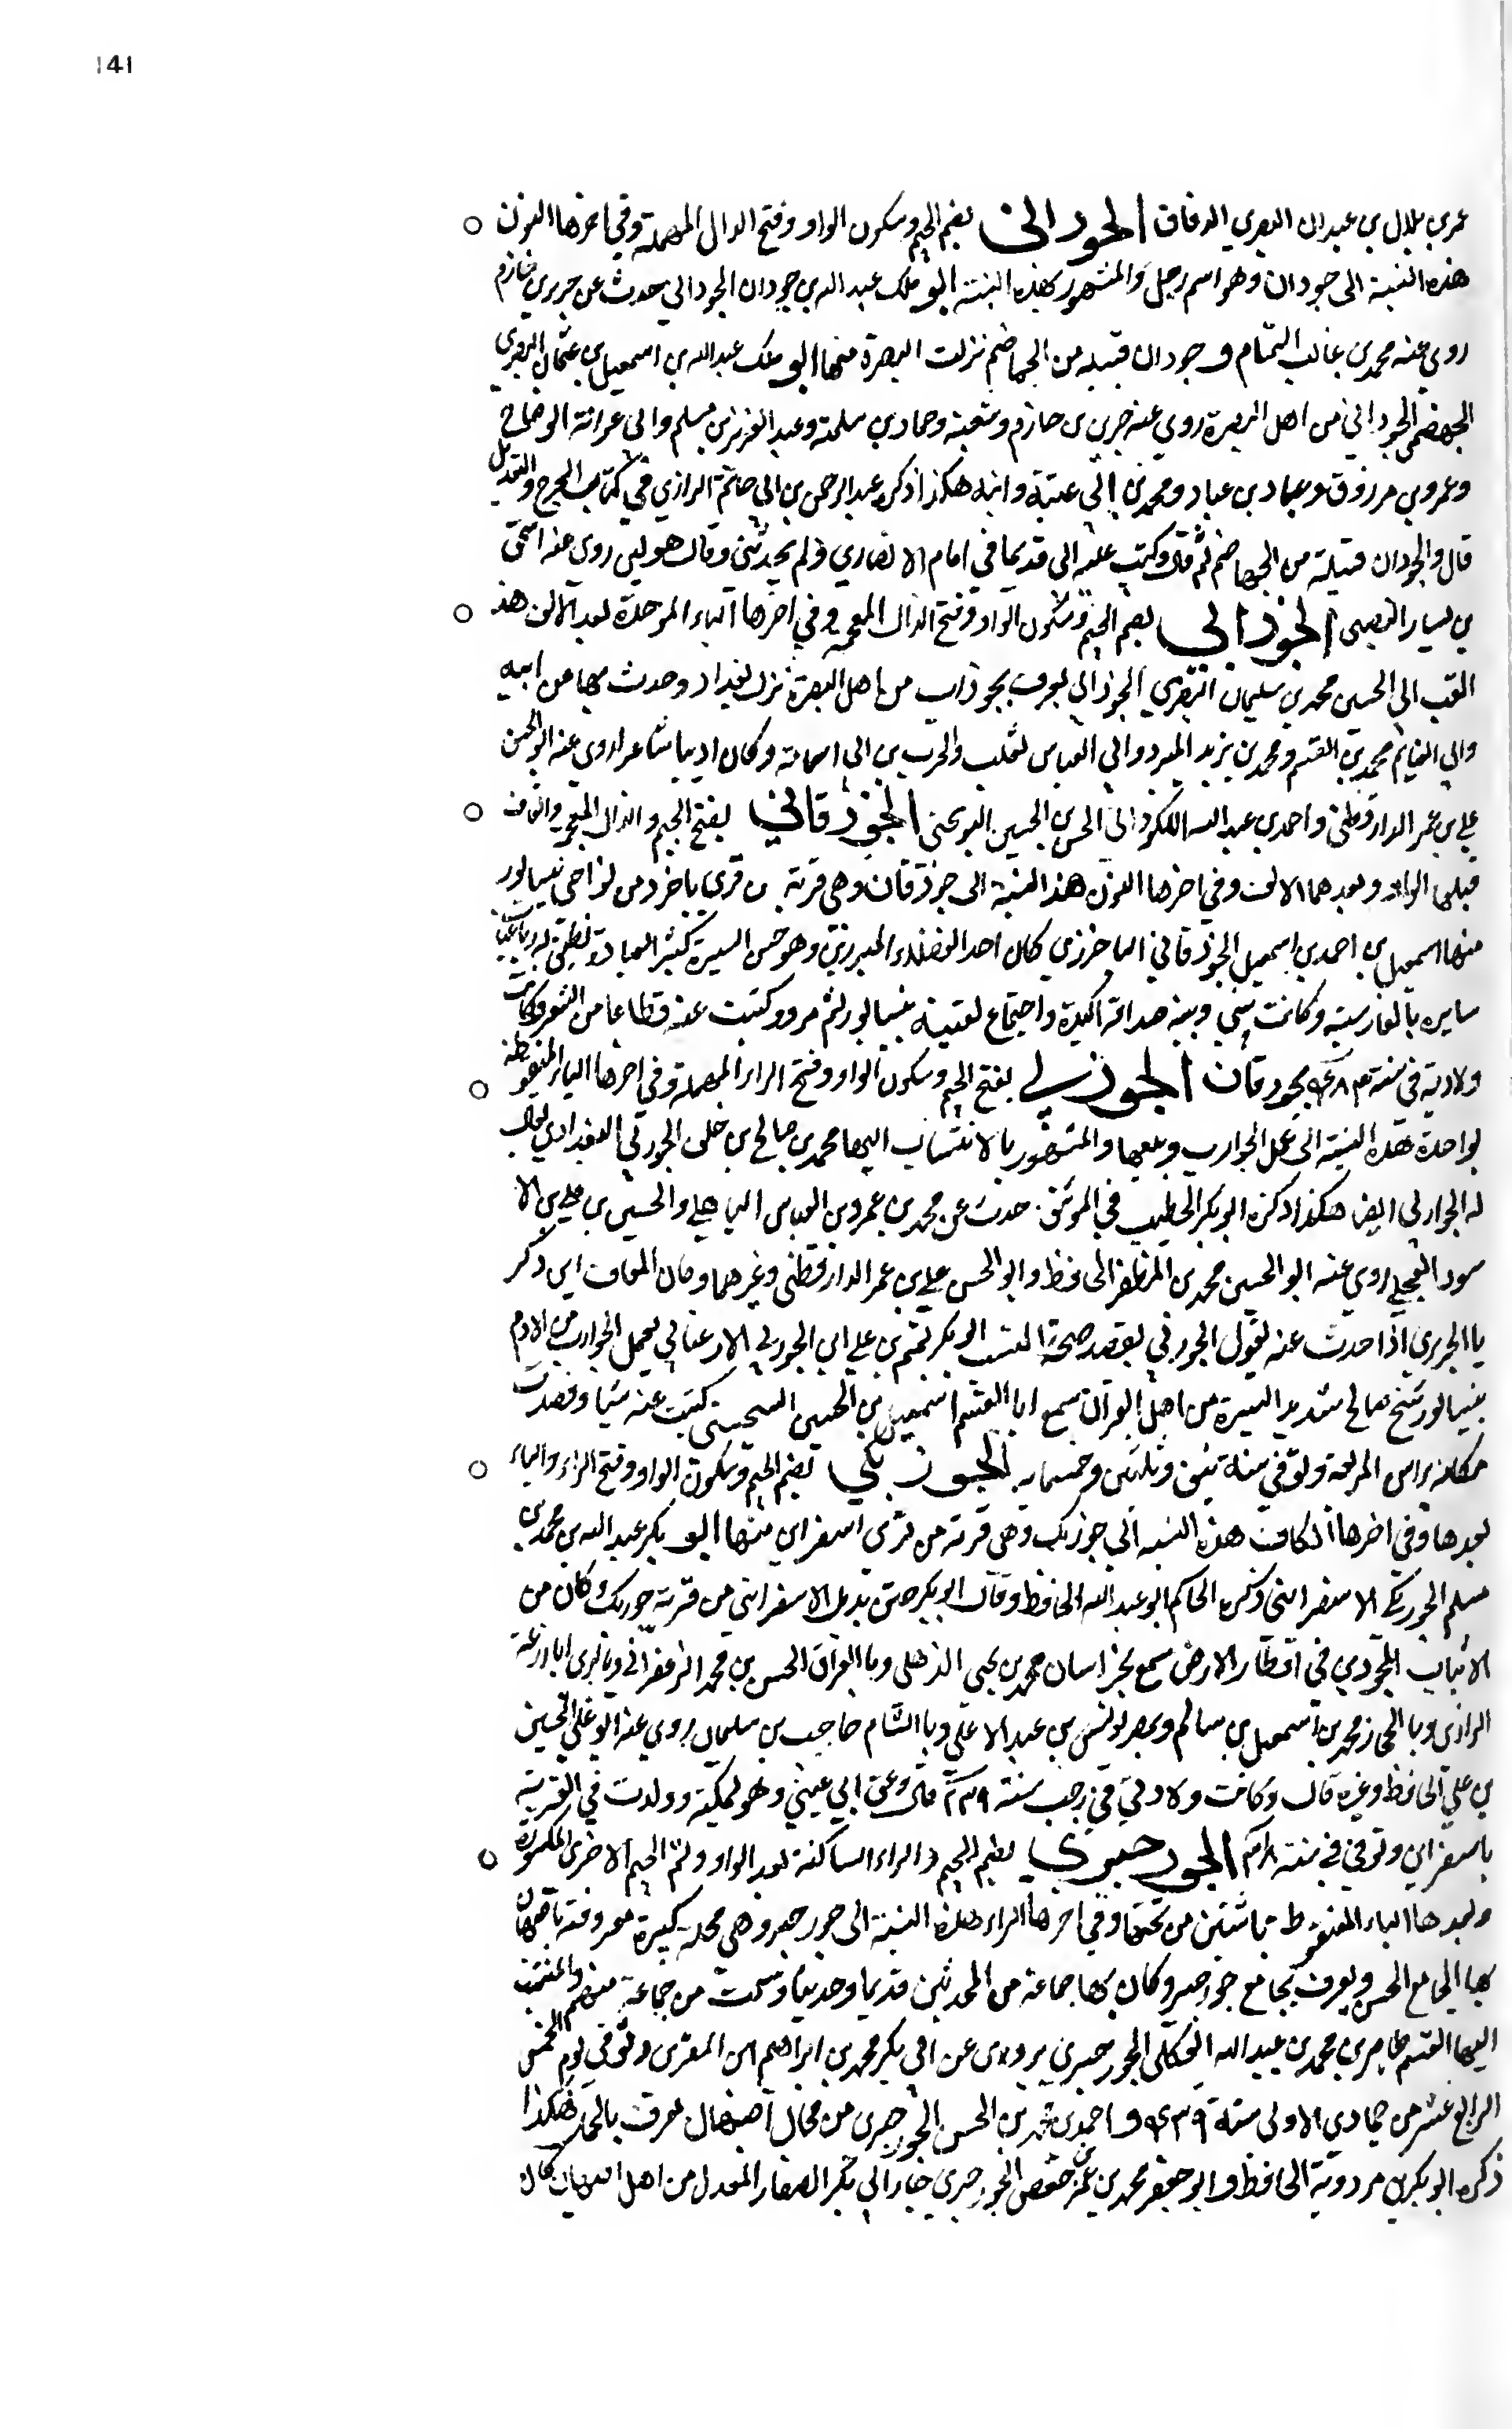 141
عمر بن بلال بن عبدان البصري الدقاق الجوداني بضم الجيم وسكون الواو وفتح الدال المهملة وفي اخرها النون
هذه النسبة الى جودان وهو اسم رجل والمشهور بهذه النسبة ابو ملك عبد الله بن جودان الجوداني حدث عن جرير بن حازم
روى عنه محمد بن غالب التمتام و جودان قبيله من الجهاضم نزلت البصرة منها ابو ملك عبد الله بن اسمعيل بن عثمان البصري
الجهضمي الجوداني من اهل البصرة روى عنه جرير بن حازم وشعبة وحماد بن سلمة وعبد العزيز بن مسلم وابي عوانة الوضاح
وعمرو بن مرزوق وعباد بن عباد ومحمد بن ابي عتبة وابنه هكذا ذكره عبد الرحمن بن ابي حاتم الرازي في كتاب الجرح والتعديل
قال والجودان قبيلة من الجهاضم ثم قال وكتب عنه ابي قديما في ايام الانصاري ولم يحدثني وقال هو لين روى عنه اسحق
بن يسار النصيبي الجوذابي بضم الجيم وسكون الواو وفتح الذال المعجمة وفي اخرها الباء الموحدة بعد الالف هذ
اللقب ابي الحسين محمد بن سليمان البصري الجوذابي يعرف بجوذاب من اهل البصرة نزل بغداد وحدث بها عن ابيه
وابي العباس محمد بن القسم ومحمد بن يزيد المبرد وابي العباس ثعلب والحرب بن ابي اسامة وكان اديبا شاعرا روى عنه ابو الحسن
علي بن عمر الدارقطني و احمد بن عبد الله وابي الحسن بن الحسين النوبختي الجوذقاني بفتح الجيم والذال المعجمة والقاف
قبلها الواو وبعدهما الالف وفي اخرها النون هذ النسبة الى جوذقان وهي قرية من قرى باخرز من نواحي نيسابور
منها اسمعيل بن احمد بن اسمعيل الجوذقاني الباخرزي كان احد الفضلاء المبرزين وهو حسن السيرة كثير العبادة نظيف له رباعيات
سايره بالفارسية وكانت بيني وبينه صداقة اكيدة واجتماع لقيته بنيسابور ثم مرو وكتبت عنه قطاعا من الشعر وكانت
ولادته في سنة بجوذقان الجوربي بفتح الجيم وسكون الواو وفتح الراء المهملة وفي اخرها الباء المنقوطة
بواحدة هذه النسبة الى عمل الجوارب وبيعها والمشهور بالانتساب اليها محمد بن صالح بن خلف الجوربي البغدادي يقال
له الجواربي ايضا هكذا ذكره ابو بكر الخطيب في المؤتنف حدث عن محمد بن عمرو بن العباس الباهلي والحسين بن علي بن الا
سود العجلي روى عنه ابو الحسين محمد بن المظفر الحافظ وابو الحسن علي بن عمر الدارقطني وغيرهما وكان المعافى ابن زكر
يا الجريري اذا حدث عنه يقول الجوربي يقصد صحة النسب ابو بكر تميم بن علي ابن الجوربي الارغياني يعمل الجوارب من الادم
بنيسابور شيخ صالح سديد السيرة من اهل القرآن سمع ابا القسم اسمعيل بن الحسين السنجبستي كتبت عنه شيئا وقصدت
مكانه براس المربعة وتوفي سنة نيف وثلثين وخمسمايه الجوربكي بضم الجيم وسكون الواو وفتح الراء والباء
بعدها وفي اخرها الكاف هذه النسبه الى جوربك وهي قرية من قرى اسفراين منها ابو بكر عبد الله بن محمد بن
مسلم الجوربكي الاسفرايني ذكره الحاكم ابو عبد الله الحافظ وقال ابو بكر الاسفرايني من قرية جوربك وكان من
الاثبات المجودين في اقطار الارض سمع بخراسان محمد بن يحيى الذهلي وبالعراق الحسن بن محمد الزعفراني وبالري ابا زرعة
الرازي وبالحجاز محمد بن اسمعيل بن سالم وبمصر يونس بن عبد الاعلى وبالشام حاجب بن سليمان روى عنه ابو علي الحسين
بن علي الحافظ وغيره قال وكانت ولادتي في رجب سنة ٢٣٩ قال وعق ابي عني وهو بمكة وولدت في القرية
باسفراين وتوفي في سنة ٣١٨ الجورجيري بضم الجيم و الراء الساكنة بعد الواو وبضم الجيم الاخرى المكسورة
وبعدها الياء المنقوطة باثنتين من تحتها وفي اخرها الراء هذه النسبة الى جورجير وهي محلة كبيرة معروفة باصبهان
بها الجامع الحسن ويعرف بجامع جورجير وكان بها جماعة من المحدثين قديما وحديثا وسمعت من جماعة منهم والمنتسب
اليها القسم طاهر بن محمد بن عبد الله العكلي الجورجيري يروي عن ابي بكر محمد بن ابراهيم ابن المقرى وتوفي يوم الخميس
الرابع عشر من جمادى الاولى سنة ٤٣٩ و احمد بن محمد بن الحسن الجورجيري من محال اصبهان يعرف بالحمال هكذا
ذكره ابو بكر بن مردويه الحافظ و ابو جعفر محمد بن عمر بن حفص الجورجيري خازن ابي بكر الصفار المعدل من اهل اصبهان كان